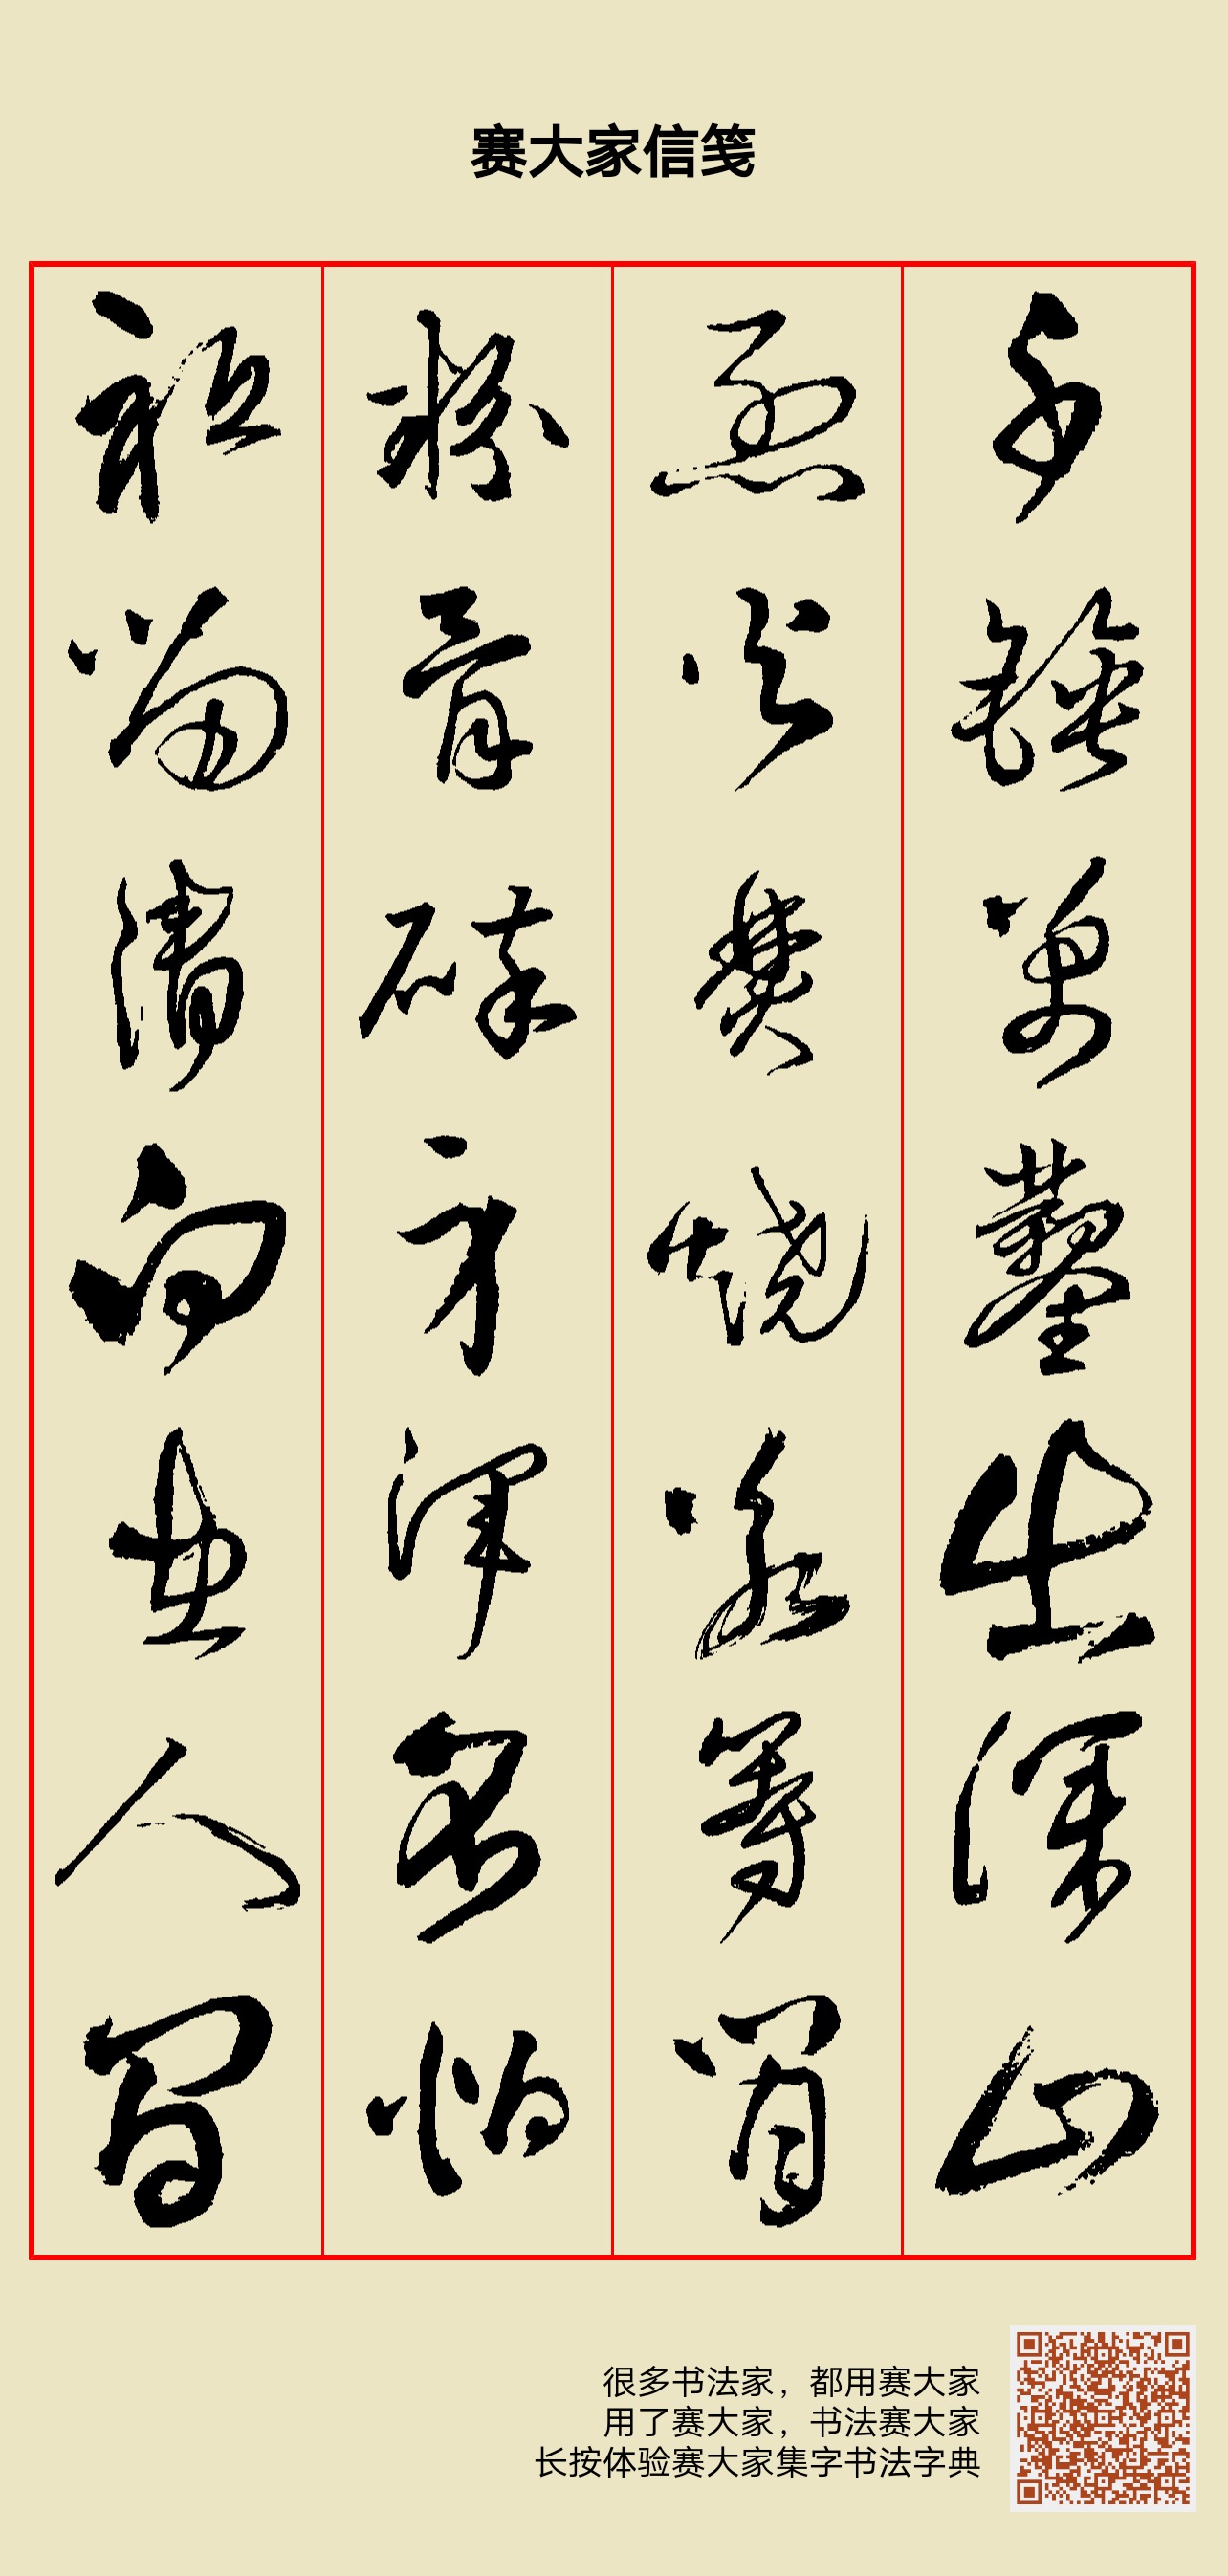 赛大家信笺
千錘萬鑿出深山
烈火焚燒若等閒
粉骨碎身渾不怕
祇留清白在人間
很多书法家，都用赛大家
用了赛大家，书法赛大家
长按体验赛大家集字书法字典